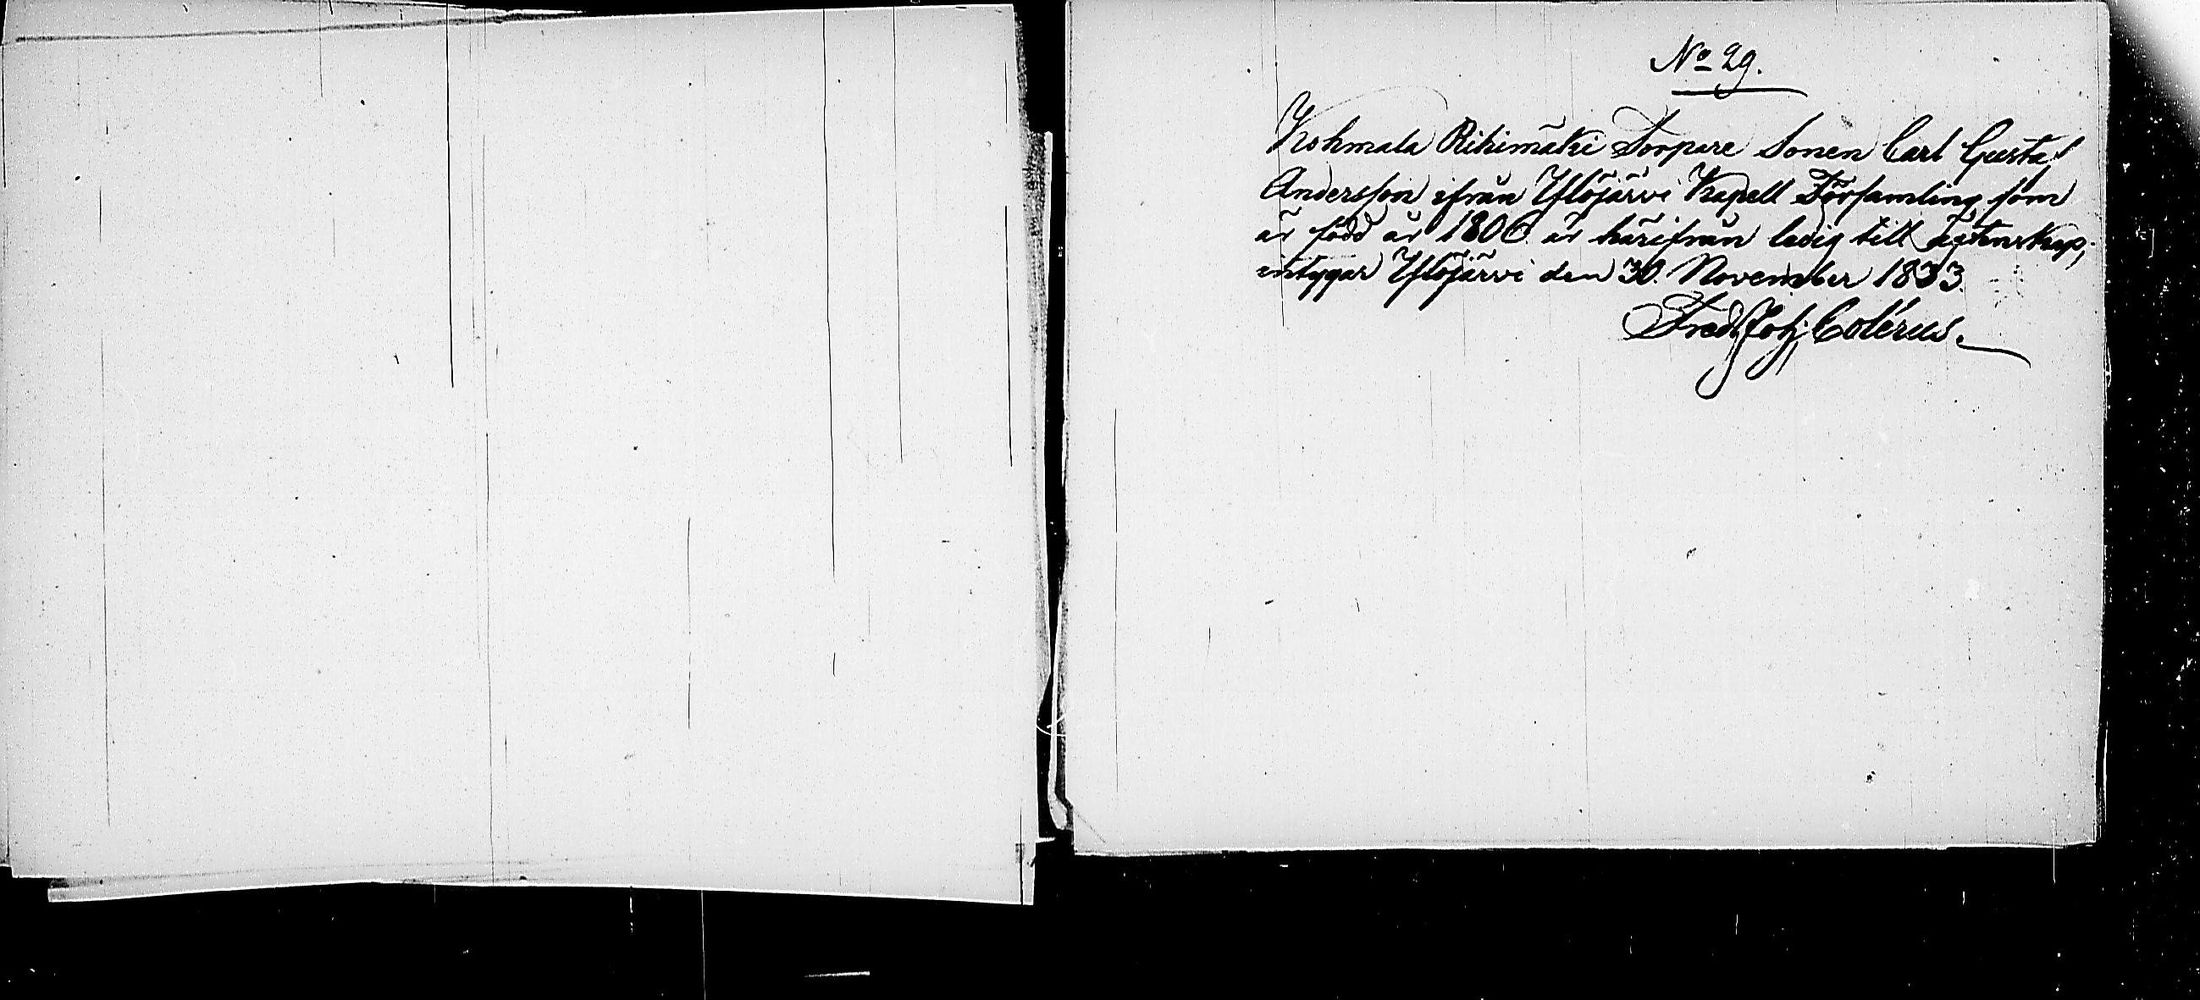 No 29.
Kohmala Rihimäki Torpare Sonen Carl Gustaf
Andersson ifrån Ylöjärvi Kapell Församling som
är född år 1806 är härifrån ledig till ägtenskap;
intygar Ylöjärvi den 30. November 1833.
Fred. Joh. Colérus.